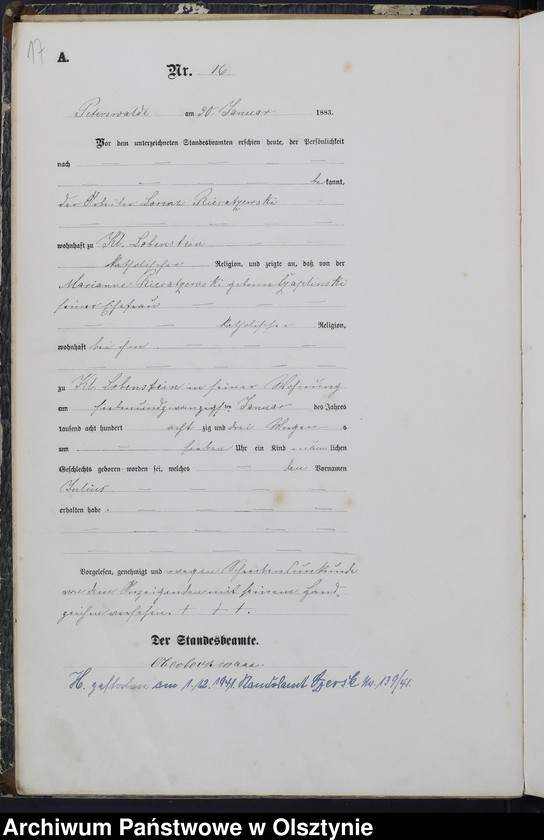 17
A.
Nr. 16
Peterswalde am 30. Januar 1883.
Vor dem unterzeichneten Standesbeamten erschien heute, der Persönlichkeit
nach
be kannt,
der Arbeiter Lorenz
wohnhaft zu Kl. Lobenstein
katholischer Religion, und zeigte an, daß von der
Marianne geborne
seiner Ehefrau
katholischer Religion,
wohnhaft bei ihm
zu Kl. Lobenstein in seiner Wohnung
am siebenundzwanzigsten Januar des Jahres
tausend acht hundert acht zig und drei Morgens
um sieben Uhr ein Kind männlichen
Geschlechts geboren worden sei, welches den Vornamen
Julius
erhalten habe.
Vorgelesen, genehmigt und wegen Schreibensunkunde
von dem Anzeigenden mit seinem Hand-
zeichen versehen. + + +.
Der Standesbeamte.
H. gestorben am 1.12.1941. Standesamt Czersk No. 139/41.
Archiwum Państwowe w Olsztynie